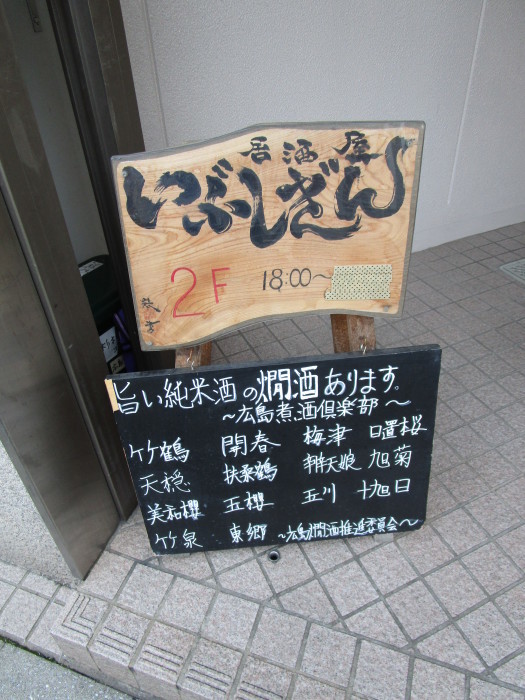 居酒屋
いぶしぎん
2F 18:00〜
旨い純米酒の燗酒あります。
〜広島煮酒倶楽部〜
竹鶴 開春 梅津 日置桜
天穏 扶桑鶴 辨天娘 旭菊
美和櫻 五櫻 玉川 十旭日
竹泉 東郷 〜広島燗酒推進委員会〜